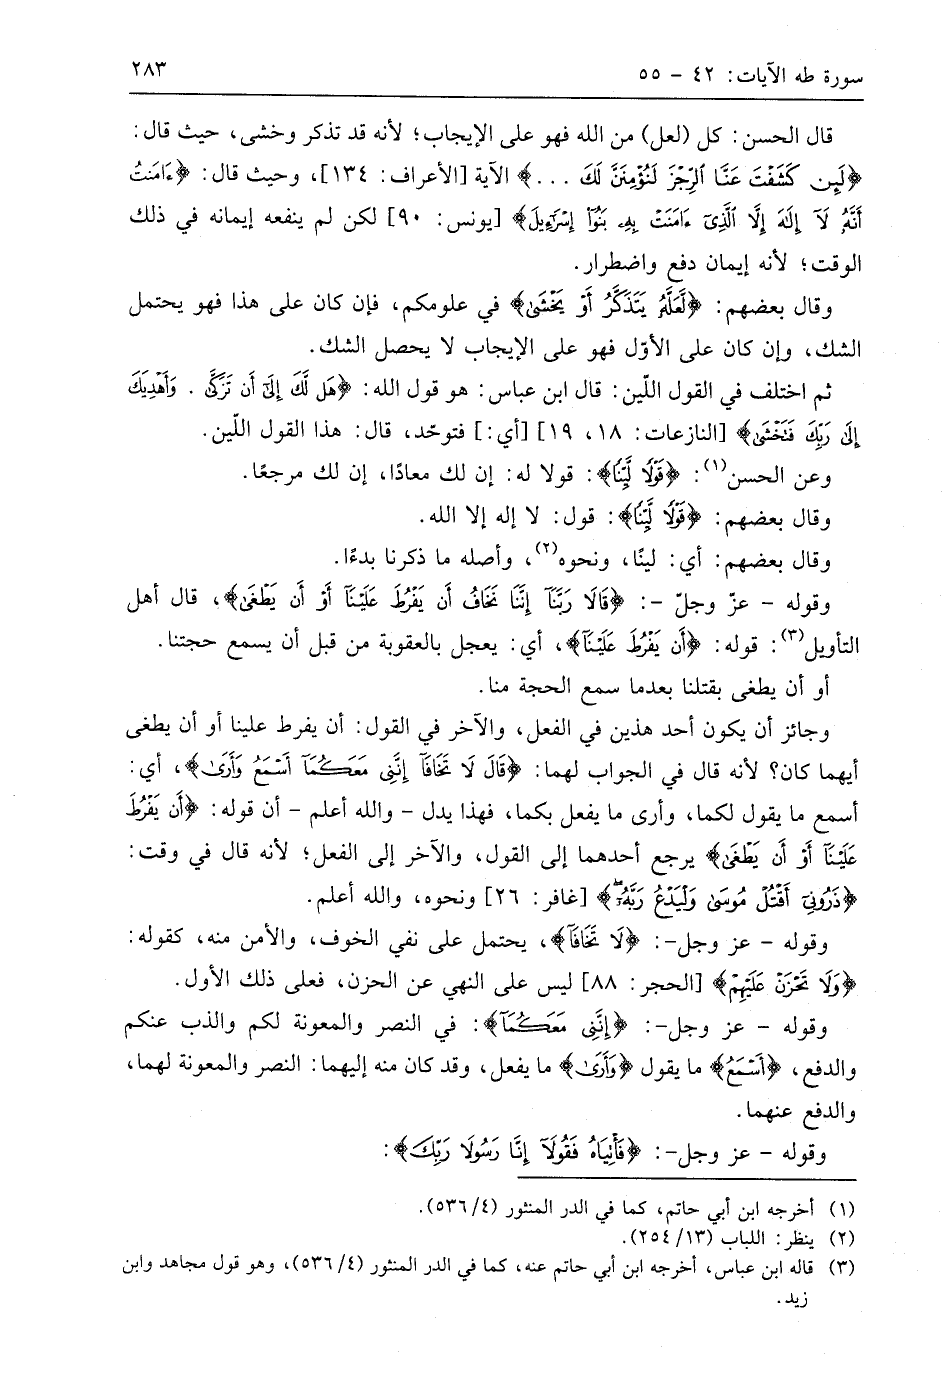 سورة طه الآيات: ٤٢ - ٥٥
٢٨٣
قال الحسن: كل (لعل) من الله فهو على الإيجاب؛ لأنه قد تذكر وخشى، حيث قال:
﴿لَئِن كَشَفْتَ عَنَّا ٱلرِّجْزَ لَنُؤْمِنَنَّ لَكَ ...﴾ الآية [الأعراف: ١٣٤]، وحيث قال: ﴿ءَامَنتُ
أَنَّهُۥ لَآ إِلَٰهَ إِلَّا ٱلَّذِىٓ ءَامَنَتْ بِهِۦ بَنُوٓا۟ إِسْرَٰٓءِيلَ﴾ [يونس: ٩٠] لكن لم ينفعه إيمانه في ذلك
الوقت؛ لأنه إيمان دفع واضطرار.
وقال بعضهم: ﴿لَّعَلَّهُۥ يَتَذَكَّرُ أَوْ يَخْشَىٰ﴾ في علومكم، فإن كان على هذا فهو يحتمل
الشك، وإن كان على الأوّل فهو على الإيجاب لا يحصل الشك.
ثم اختلف في القول اللّين: قال ابن عباس: هو قول الله: ﴿هَل لَّكَ إِلَىٰٓ أَن تَزَكَّىٰ . وَأَهْدِيَكَ
إِلَىٰ رَبِّكَ فَتَخْشَىٰ﴾ [النازعات: ١٨، ١٩] [أي:] فتوحّد، قال: هذا القول اللين.
وعن الحسن(١): ﴿قَوْلًا لَّيِّنًا﴾: قولا له: إن لك معادًا، إن لك مرجعًا.
وقال بعضهم: ﴿قَوْلًا لَّيِّنًا﴾: قول: لا إله إلا الله.
وقال بعضهم: أي: لينًا، ونحوه(٢)، وأصله ما ذكرنا بدءًا.
وقوله - عزّ وجلّ -: ﴿قَالَا رَبَّنَآ إِنَّنَا نَخَافُ أَن يَفْرُطَ عَلَيْنَآ أَوْ أَن يَطْغَىٰ﴾، قال أهل
التأويل(٣): قوله: ﴿أَن يَفْرُطَ عَلَيْنَآ﴾، أي: يعجل بالعقوبة من قبل أن يسمع حجتنا.
أو أن يطغى بقتلنا بعدما سمع الحجة منا.
وجائز أن يكون أحد هذين في الفعل، والآخر في القول: أن يفرط علينا أو أن يطغى
أيهما كان؟ لأنه قال في الجواب لهما: ﴿قَالَ لَا تَخَافَآ إِنَّنِى مَعَكُمَآ أَسْمَعُ وَأَرَىٰ﴾، أي:
أسمع ما يقول لكما، وأرى ما يفعل بكما، فهذا يدل - والله أعلم - أن قوله: ﴿أَن يَفْرُطَ
عَلَيْنَآ أَوْ أَن يَطْغَىٰ﴾ يرجع أحدهما إلى القول، والآخر إلى الفعل؛ لأنه قال في وقت:
﴿ذَرُونِىٓ أَقْتُلْ مُوسَىٰ وَلْيَدْعُ رَبَّهُۥٓ﴾ [غافر: ٢٦] ونحوه، والله أعلم.
وقوله - عز وجل-: ﴿لَا تَخَافَآ﴾، يحتمل على نفي الخوف، والأمن منه، كقوله:
﴿وَلَا تَحْزَنْ عَلَيْهِمْ﴾ [الحجر: ٨٨] ليس على النهي عن الحزن، فعلى ذلك الأول.
وقوله - عز وجل-: ﴿إِنَّنِى مَعَكُمَآ﴾: في النصر والمعونة لكم والذب عنكم
والدفع، ﴿أَسْمَعُ﴾ ما يقول ﴿وَأَرَىٰ﴾ ما يفعل، وقد كان منه إليهما: النصر والمعونة لهما،
والدفع عنهما.
وقوله - عز وجل-: ﴿فَأْتِيَاهُ فَقُولَآ إِنَّا رَسُولَا رَبِّكَ﴾:
(١) أخرجه ابن أبي حاتم، كما في الدر المنثور (٥٣٦/٤).
(٢) ينظر: اللباب (٢٥٤/١٣).
(٣) قاله ابن عباس، أخرجه ابن أبي حاتم عنه، كما في الدر المنثور (٥٣٦/٤)، وهو قول مجاهد وابن
زيد.